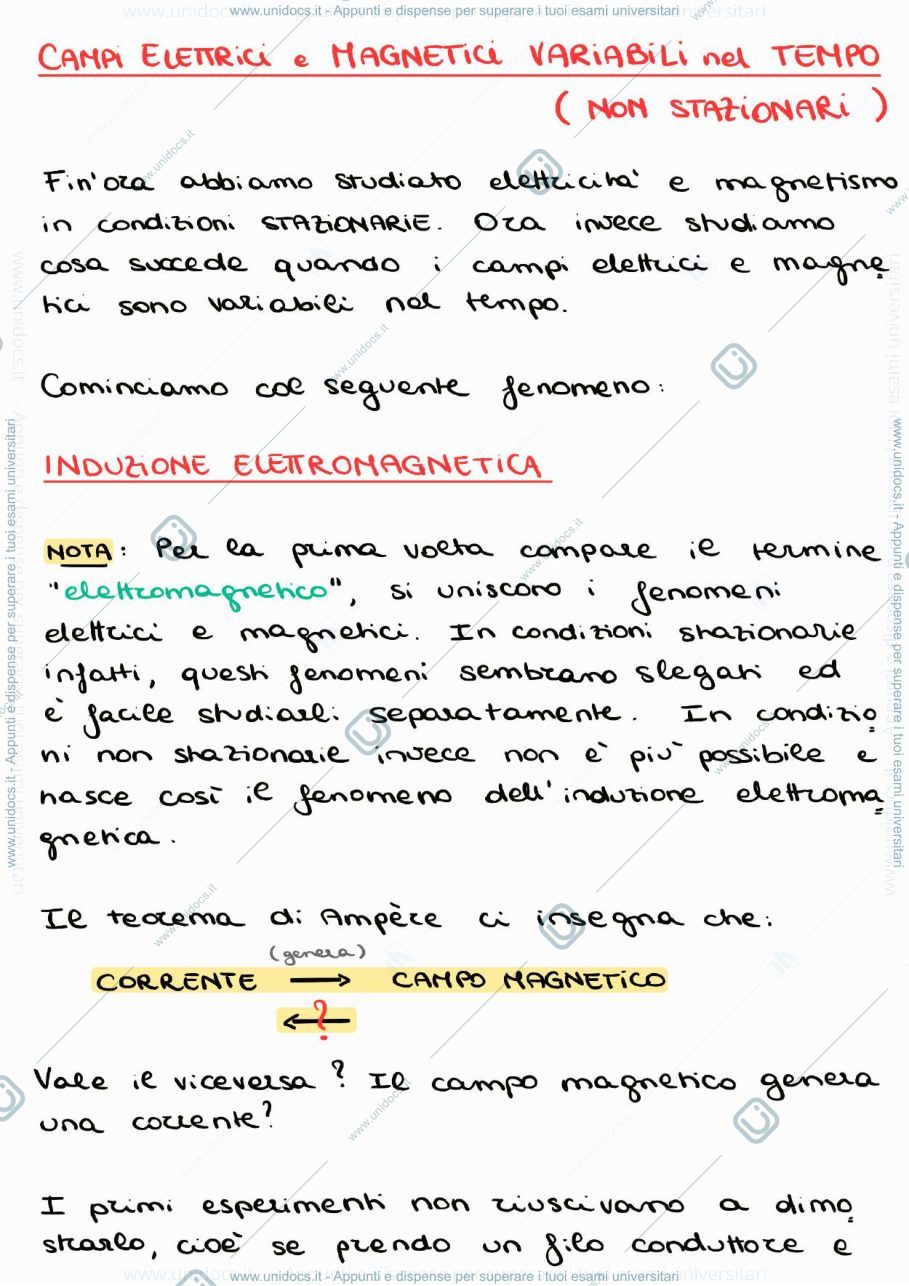 www.unidocs.it - Appunti e dispense per superare i tuoi esami universitari
CAMPI ELETTRICI e MAGNETICI VARIABILI nel TEMPO
( NON STAZIONARI )
Fin'ora abbiamo studiato elettricità e magnetismo
in condizioni STAZIONARIE. Ora invece studiamo
cosa succede quando i campi elettrici e magne
tici sono variabili nel tempo.
Cominciamo col seguente fenomeno:
INDUZIONE ELETTROMAGNETICA
NOTA: Per la prima volta compare il termine
"elettromagnetico", si uniscono i fenomeni
elettrici e magnetici. In condizioni stazionarie
infatti, questi fenomeni sembrano slegati ed
è facile studiarli separatamente. In condizio
ni non stazionarie invece non è più possibile e
nasce così il fenomeno dell'induzione elettroma
gnetica.
Il teorema di Ampère ci insegna che:
(genera)
CORRENTE → CAMPO MAGNETICO
← ?
Vale il viceversa? Il campo magnetico genera
una corrente?
I primi esperimenti non riuscivano a dimo
strarlo, cioè se prendo un filo conduttore e
www.unidocs.it - Appunti e dispense per superare i tuoi esami universitari
www.unidocs.it - Appunti e dispense per superare i tuoi esami universitari
www.unidocs.it - Appunti e dispense per superare i tuoi esami universitari